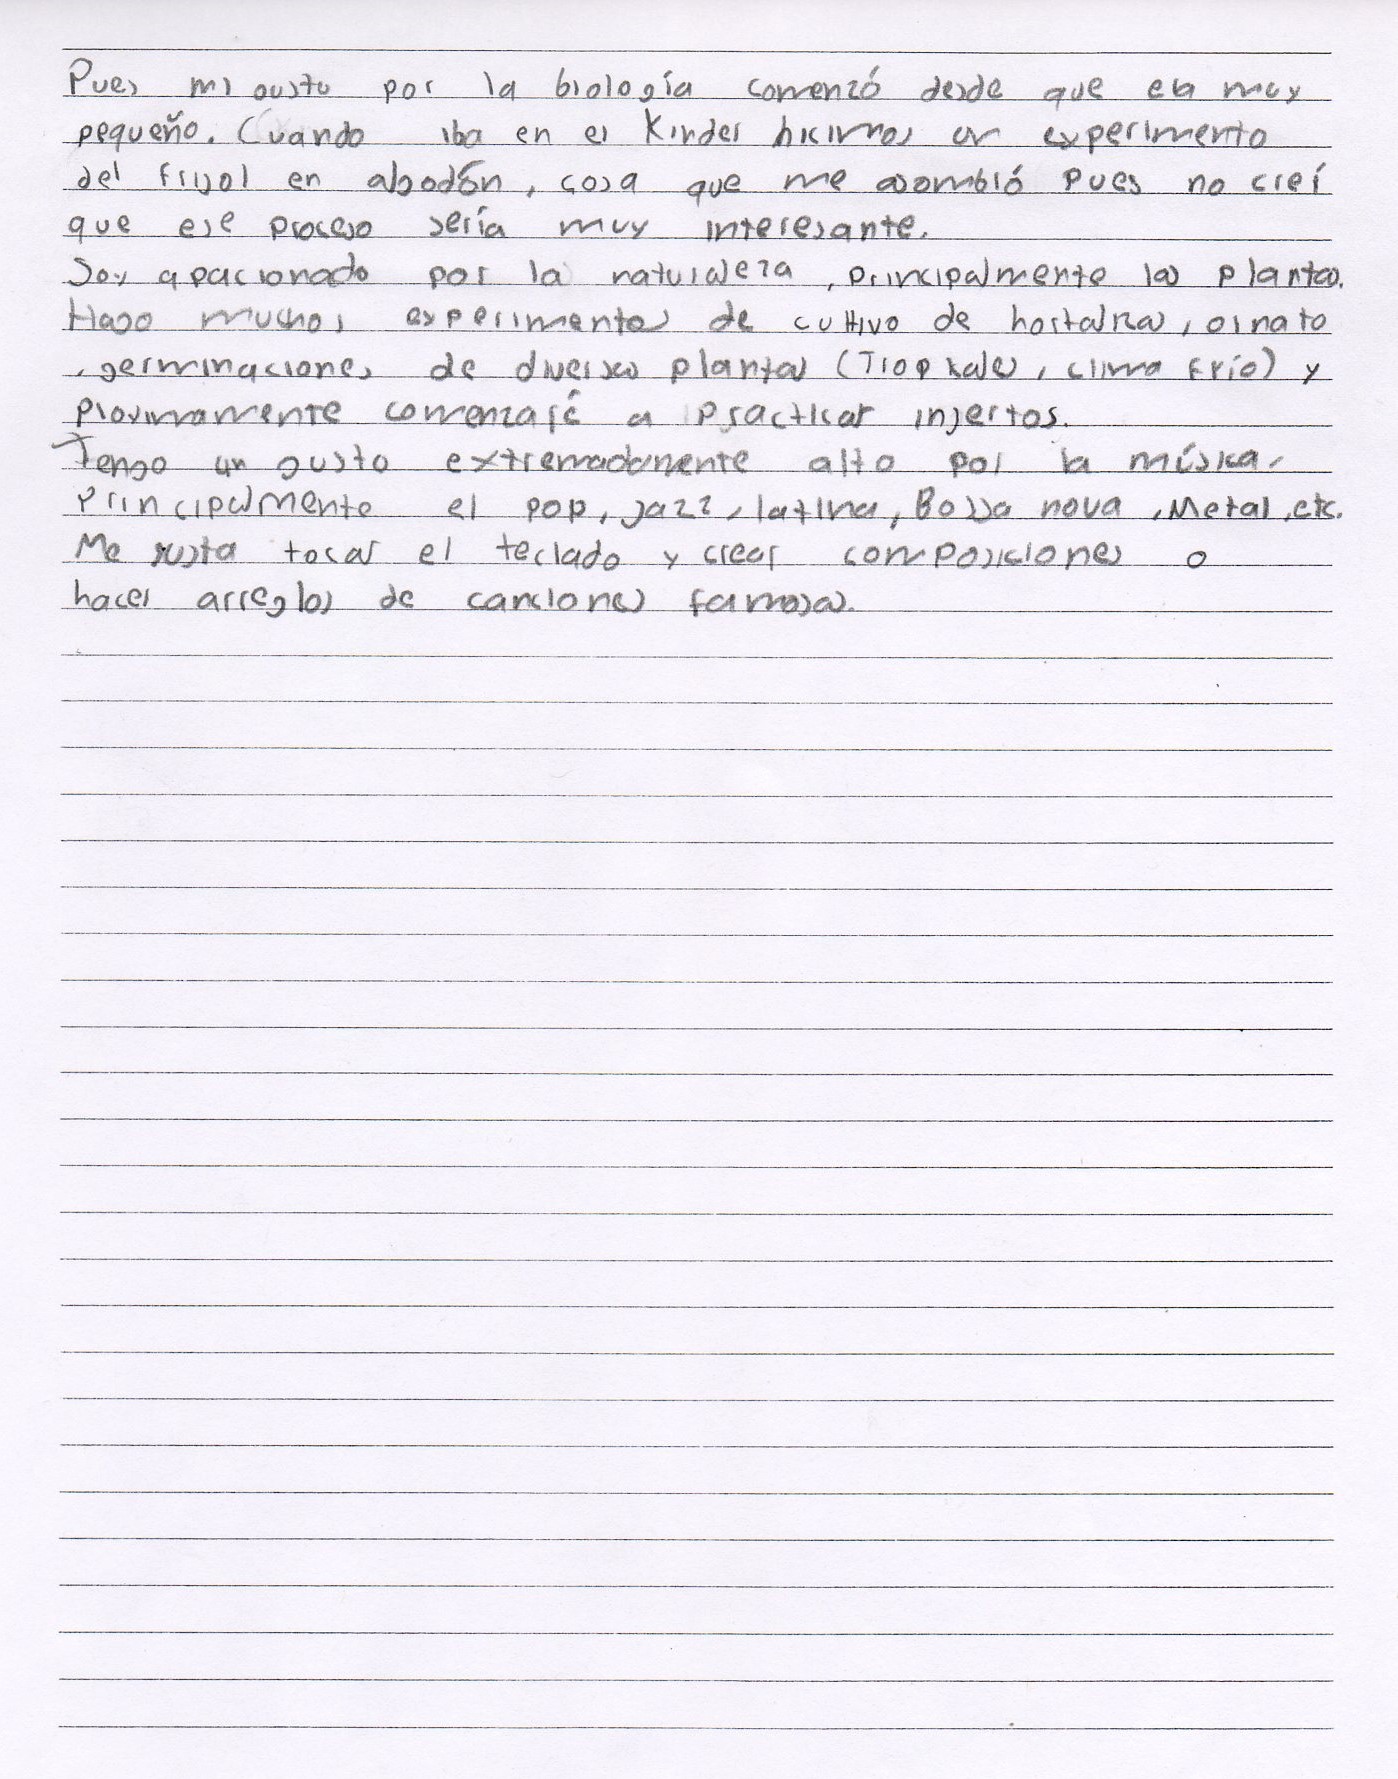 Pues mi gusto por la biología comenzó desde que era muy
pequeño. Cuando iba en el Kinder hicimos un experimento
del frijol en algodón, cosa que me asombró pues no creí
que ese proceso sería muy interesante.
Soy apacionado por la naturaleza, principalmente las plantas.
Hago muchos experimentos de cultivo de hortalizas, ornato
, germinaciones de diversas plantas (Tropicales, clima frío) y
proximamente comenzaré a practicar injertos.
Tengo un gusto extremadamente alto por la música,
principalmente el pop, jazz, latina, Bossa nova, Metal, etc.
Me gusta tocar el teclado y crear composiciones o
hacer arreglos de canciones famosas.